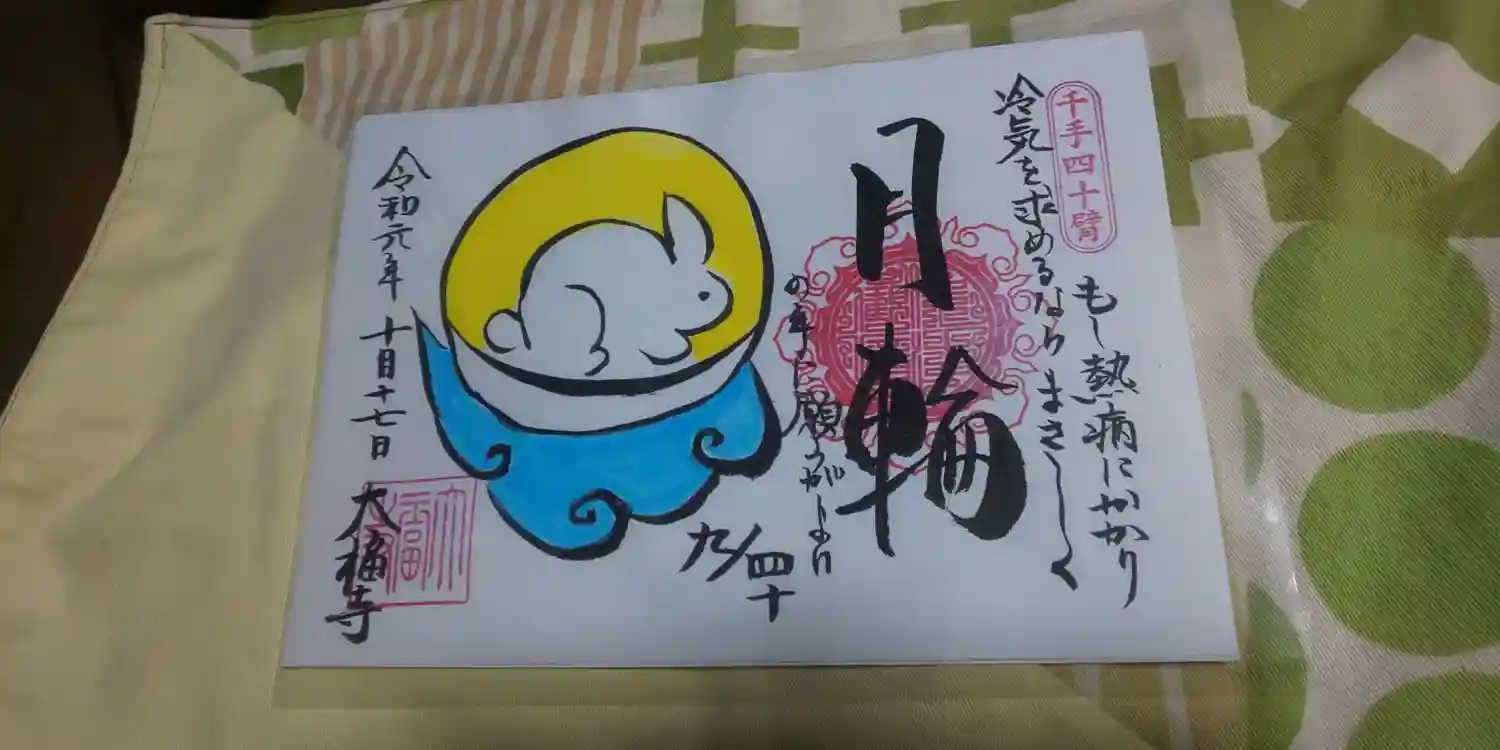 千手四十臂
もし熱病にかかり
冷気を求めるならまさしく
月輪
の手に願うがよい
九/四十
令和元年 十月十七日
大福寺